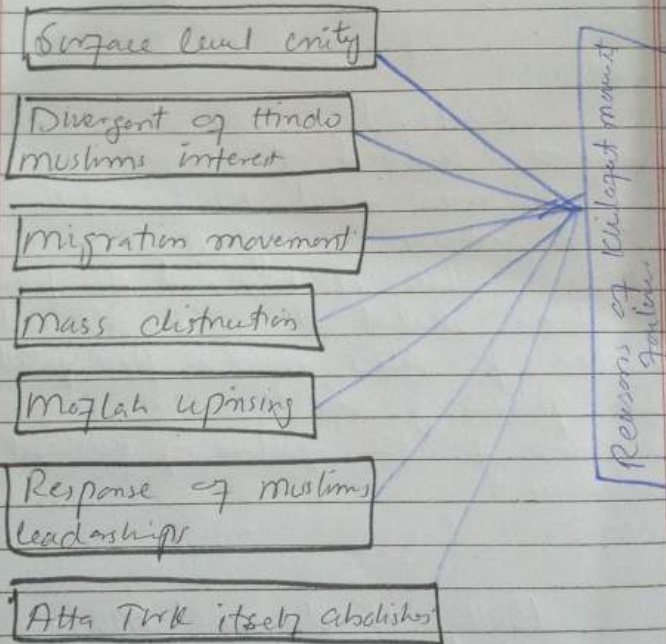 Surface leval unity
Divergent of Hindo
muslims interest
migration movement
Mass distruction
Moplah uprising
Response of muslims
leadarships
Atta Turk itself abolishes
Reasons of Khilafat movmt
Failure